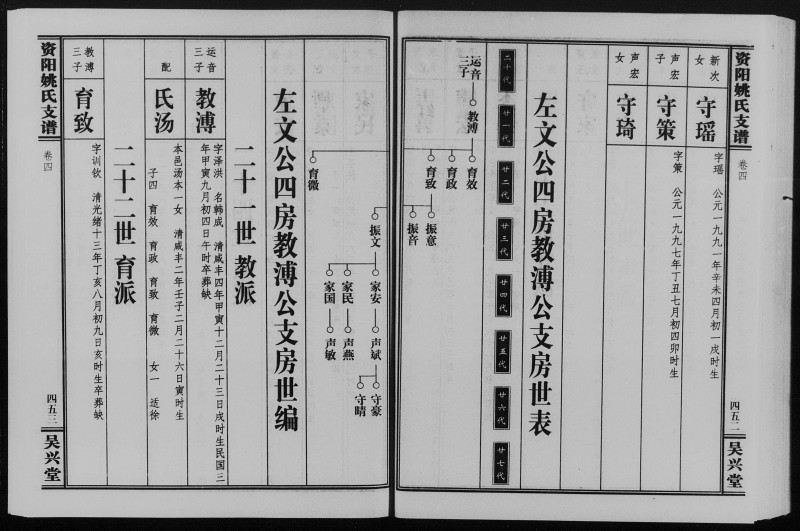 资阳姚氏支谱
卷四
四五二
吴兴堂
新次
女
守瑶
字瑶 公元一九九一年辛未四月初一戌时生
声宏
子
守策
字策 公元一九九七年丁丑七月初四卯时生
声宏
女
守琦
左文公四房教溥公支房世表
二十代
廿一代
廿二代
廿三代
廿四代
廿五代
廿六代
廿七代
运音
三子
教溥
育效
育政
育致
振意
振音
育微
振文
家安
家民
家国
声斌
声燕
声敏
守豪
守晴
左文公四房教溥公支房世编
二十一世 教派
运音
三子
教溥
字泽洪 名韩成 清咸丰四年甲寅十二月二十三日戌时生民国三
年甲寅九月初四日午时卒葬缺
配
氏汤
本邑汤本一女 清咸丰二年壬子二月二十六日寅时生
子四 育效 育政 育致 育微 女一 适徐
二十二世 育派
教溥
三子
育致
字训钦 清光绪十三年丁亥八月初九日亥时生卒葬缺
资阳姚氏支谱
卷四
四五三
吴兴堂